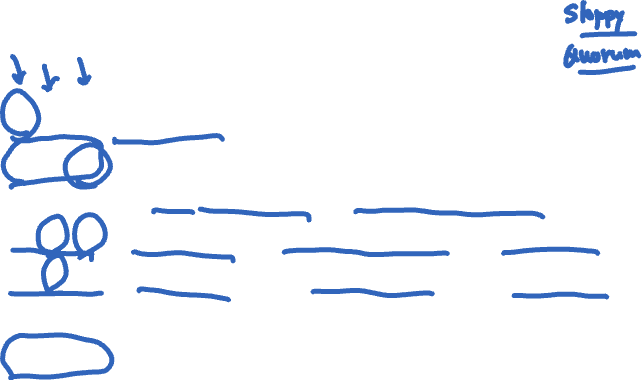 Sloppy
Quorum